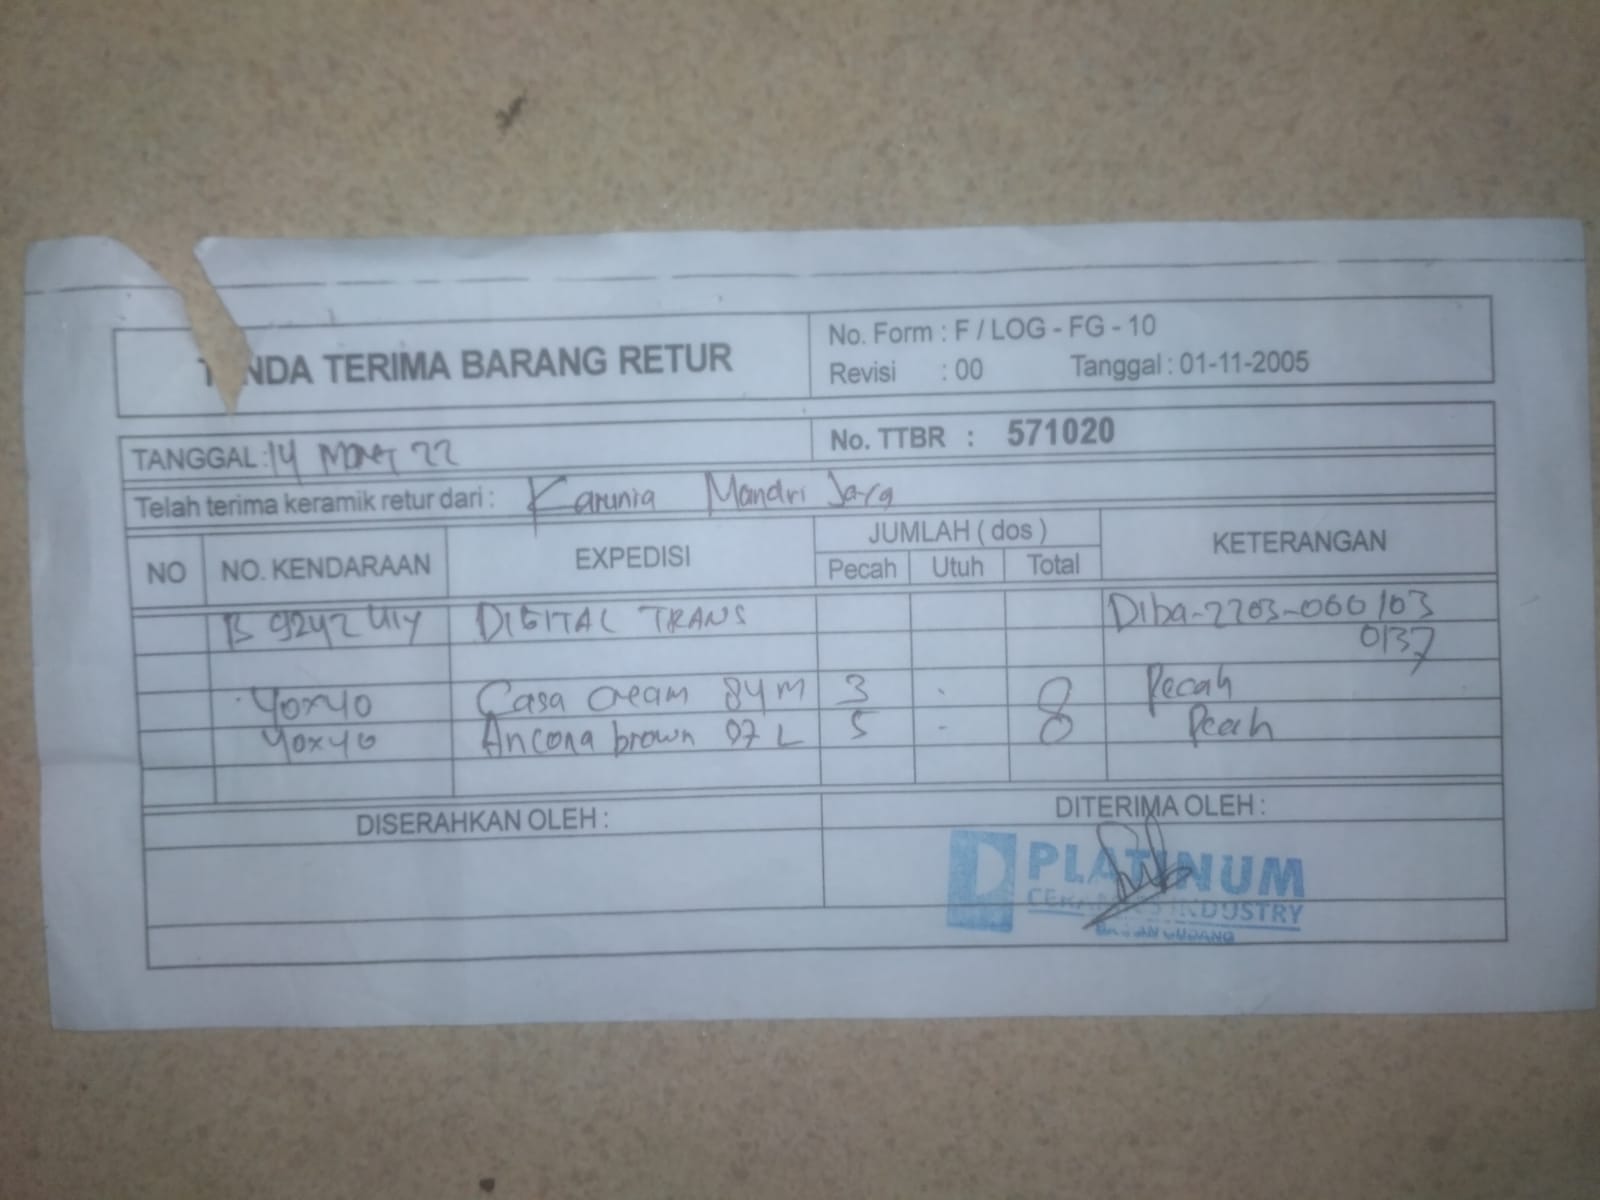 TANDA TERIMA BARANG RETUR
No. Form : F / LOG - FG - 10
Revisi : 00 Tanggal : 01-11-2005
TANGGAL : 14 Maret 22
No. TTBR : 571020
Telah terima keramik retur dari : Karunia Mandri Jaya
NO NO. KENDARAAN EXPEDISI JUMLAH ( dos ) KETERANGAN
Pecah Utuh Total
B 9242 UIY DIGITAL TRANS Diba-2203-060/03
0137
40x40 Casa cream 84 M 3 - Pecah
40x40 Ancona brown 07 L 5 - 8 Pecah
DISERAHKAN OLEH :
DITERIMA OLEH :
PLATINUM
CERAMICS INDUSTRY
BAGIAN GUDANG